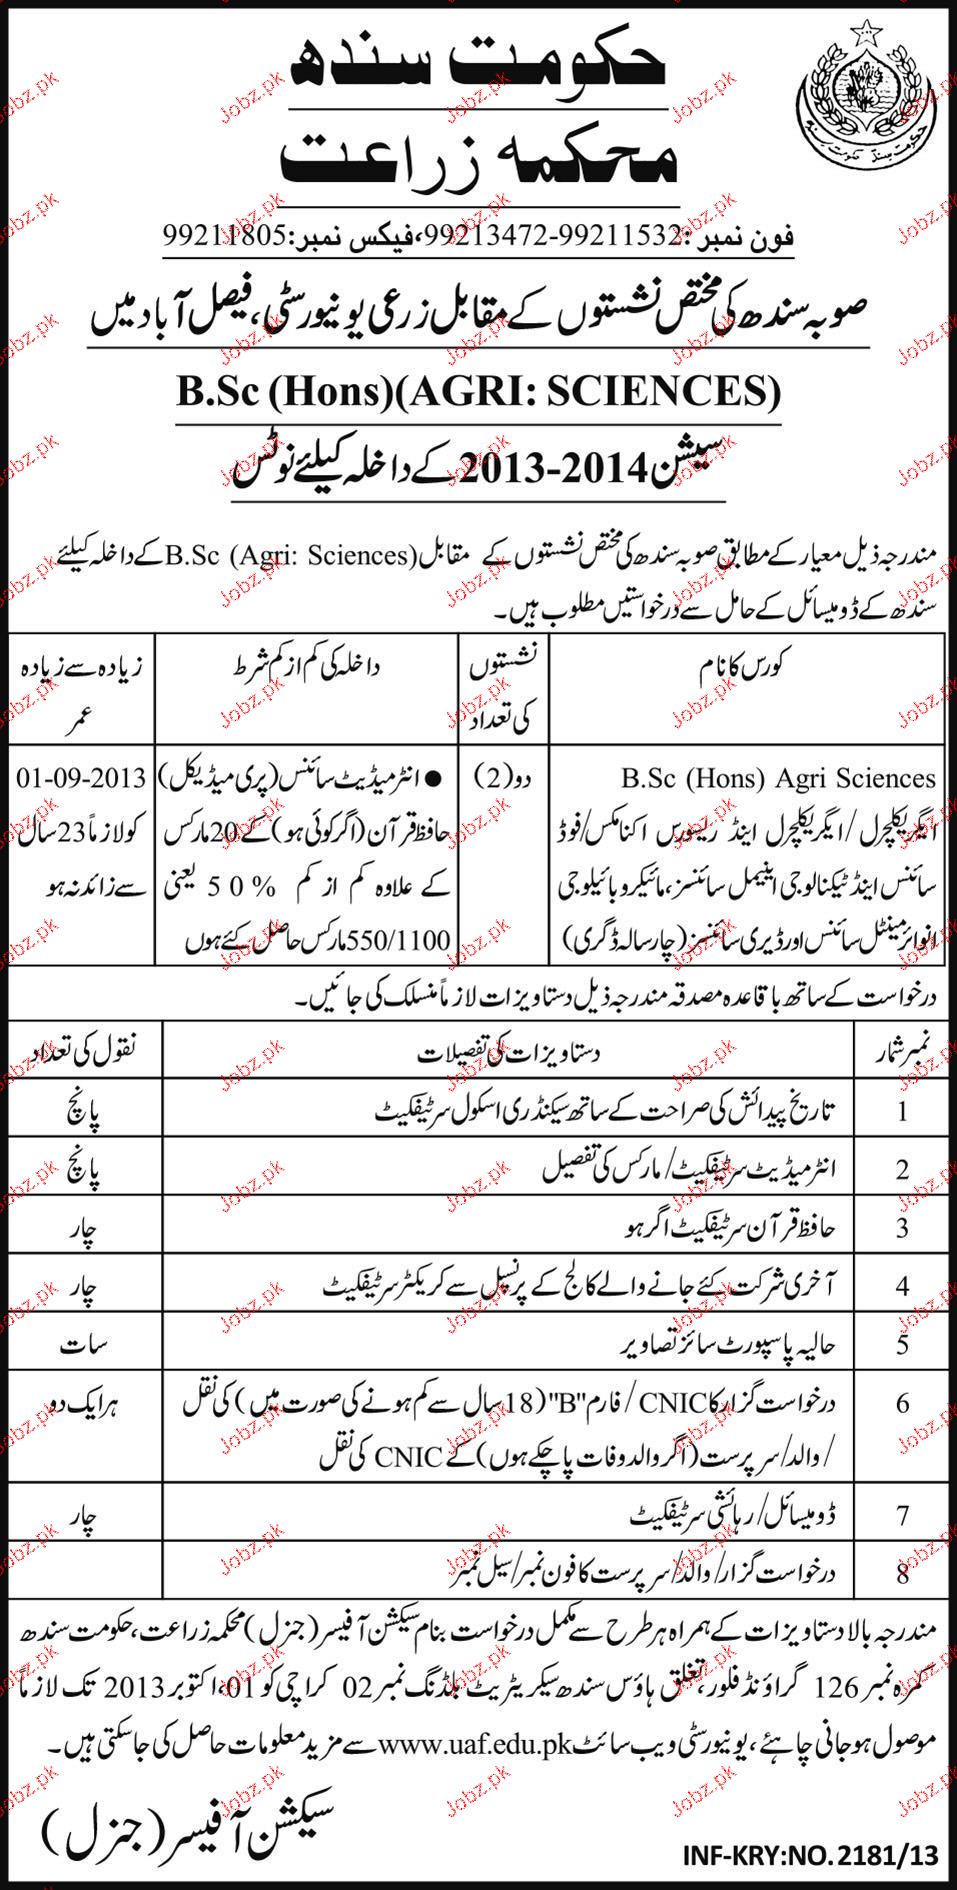 حکومت سندھ
محکمہ زراعت
فون نمبر :99211532-99213472،فیکس نمبر:99211805
صوبہ سندھ کی مختص نشستوں کے مقابل زرعی یونیورسٹی، فیصل آباد میں
B.Sc (Hons)(AGRI: SCIENCES)
سیشن 2013-2014 کے داخلہ کیلئے نوٹس
مندرجہ ذیل معیار کے مطابق صوبہ سندھ کی مختص نشستوں کے مقابل B.Sc (Agri: Sciences) کے داخلہ کیلئے
سندھ کے ڈومیسائل کے حامل سے درخواستیں مطلوب ہیں۔
کورس کا نام
نشستوں
کی تعداد
داخلہ کی کم از کم شرط
زیادہ سے زیادہ
عمر
B.Sc (Hons) Agri Sciences
ایگریکلچرل/ایگریکلچرل اینڈ ریسورس اکنامکس/فوڈ
سائنس اینڈ ٹیکنالوجی اینیمل سائنسز، مائیکروبائیلوجی
انوائرمینٹل سائنس اور ڈیری سائنسز (چار سالہ ڈگری)
دو(2)
● انٹرمیڈیٹ سائنس (پری میڈیکل)
حافظ قرآن (اگر کوئی ہو) کے 20 مارکس
کے علاوہ کم از کم 50% یعنی
550/1100 مارکس حاصل کئے ہوں
01-09-2013
کو لازماً 23 سال
سے زائد نہ ہو
درخواست کے ساتھ باقاعدہ مصدقہ مندرجہ ذیل دستاویزات لازماً منسلک کی جائیں۔
نمبر شمار دستاویزات کی تفصیلات نقول کی تعداد
1 تاریخ پیدائش کی صراحت کے ساتھ سیکنڈری اسکول سرٹیفکیٹ پانچ
2 انٹرمیڈیٹ سرٹیفکیٹ/ مارکس کی تفصیل پانچ
3 حافظ قرآن سرٹیفکیٹ اگر ہو چار
4 آخری شرکت کئے جانے والے کالج کے پرنسپل سے کریکٹر سرٹیفکیٹ چار
5 حالیہ پاسپورٹ سائز تصاویر سات
6 درخواست گزار کا CNIC/ فارم "B" (18 سال سے کم ہونے کی صورت میں) کی نقل ہر ایک دو
/ والد/ سرپرست (اگر والد وفات پاچکے ہوں) کے CNIC کی نقل
7 ڈومیسائل/ رہائشی سرٹیفکیٹ چار
8 درخواست گزار/ والد/ سرپرست کا فون نمبر/ سیل نمبر
مندرجہ بالا دستاویزات کے ہمراہ ہر طرح سے مکمل درخواست بنام سیکشن آفیسر (جنرل) محکمہ زراعت، حکومت سندھ
کمرہ نمبر 126 گراؤنڈ فلور، تغلق ہاؤس سندھ سیکریٹریٹ بلڈنگ نمبر 02 کراچی کو 01، اکتوبر 2013 تک لازماً
موصول ہوجانی چاہئے، یونیورسٹی ویب سائٹ www.uaf.edu.pk سے مزید معلومات حاصل کی جاسکتی ہیں۔
سیکشن آفیسر (جنرل)
INF-KRY:NO.2181/13